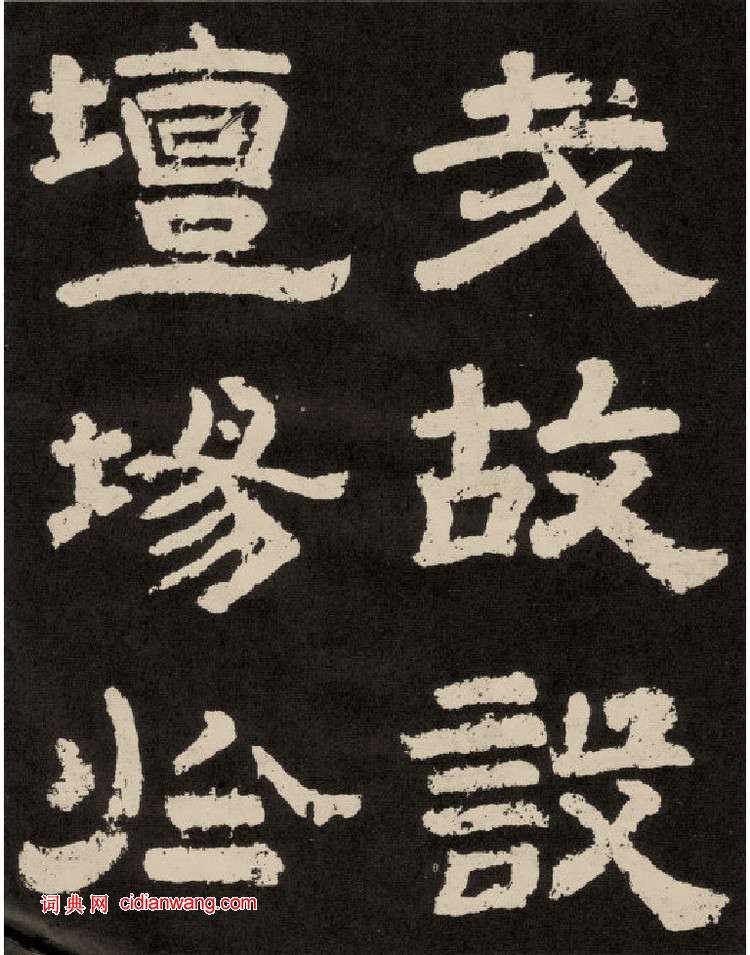 哉故設
壇場於
词典网 cidianwang.com